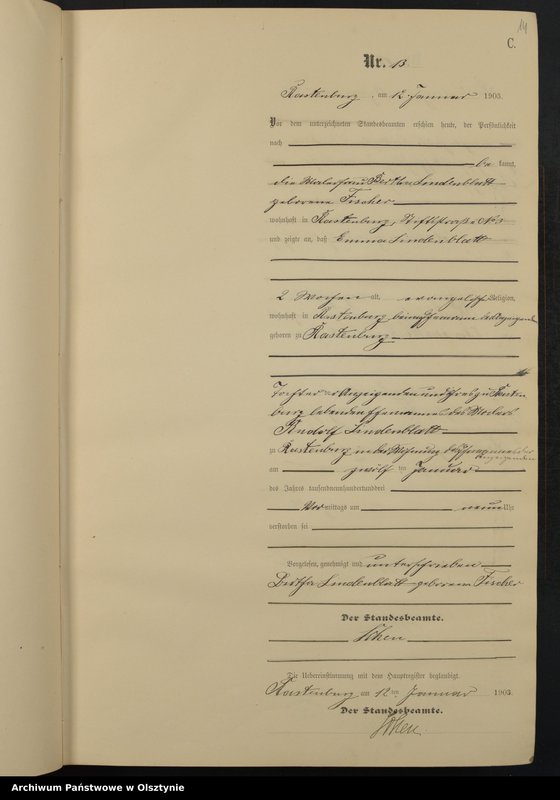 14
C.
Nr. 13
Rastenburg, am 12. Januar 1903.
Vor dem unterzeichneten Standesbeamten erschien heute, der Persönlichkeit
nach
be kannt,
die Malerfrau Bertha Lindenblatt
geborene Fischer
wohnhaft in Rastenburg, Stiftstraße No 3
und zeigte an, daß Emma Lindenblatt
2 Wochen alt, evangelischer Religion,
wohnhaft in Rastenburg beim Ehemann der Anzeigenden
geboren zu Rastenburg
Tochter der Anzeigenden und ihres zu Rasten
burg lebenden Ehemannes des Malers
Rudolf Lindenblatt
zu Rastenburg in der Wohnung des Ehemannes der
Anzeigenden
am zwölf ten Januar
des Jahres tausendneunhundertunddrei
Vor mittags um neun Uhr
verstorben sei
Vorgelesen, genehmigt und unterschrieben
Bertha Lindenblatt geborene Fischer
Der Standesbeamte.
Die Uebereinstimmung mit dem Hauptregister beglaubigt.
Rastenburg am 12ten Januar 1903.
Der Standesbeamte.
Archiwum Państwowe w Olsztynie